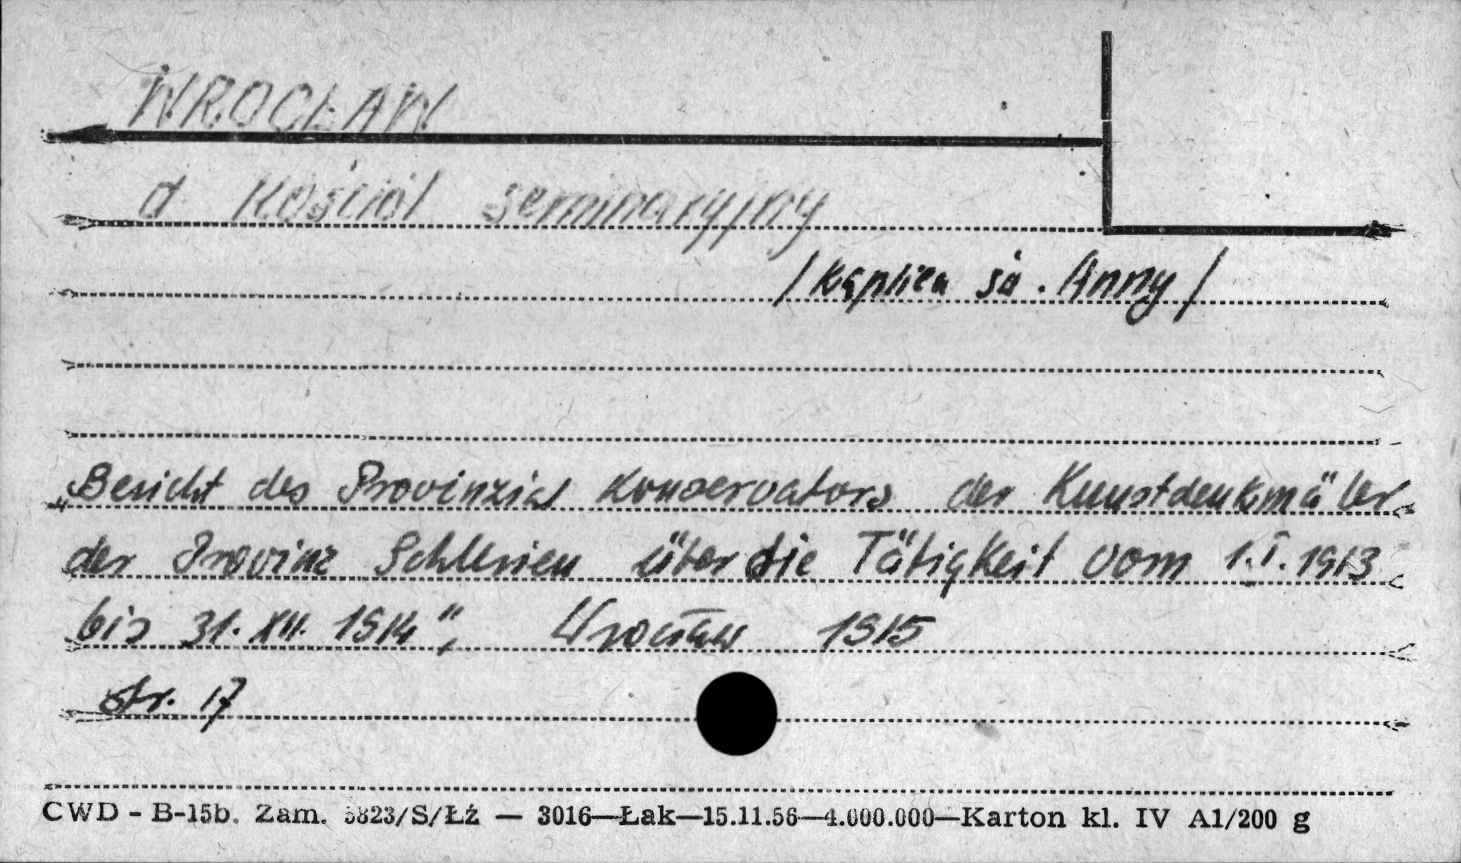 WROCŁAW
d Kościół seminaryjny
/kaplica św. Anny/
"Bericht des Provinzial konservators der Kunstdenkmäler
der Provinz Schlesien über die Tätigkeit vom 1.I.1913
bis 31.XII.1914", Wrocław 1915
str. 17
CWD - B-15b. Zam. 5823/S/ŁŹ — 3016—Łak—15.11.56—4.000.000—Karton kl. IV A1/200 g